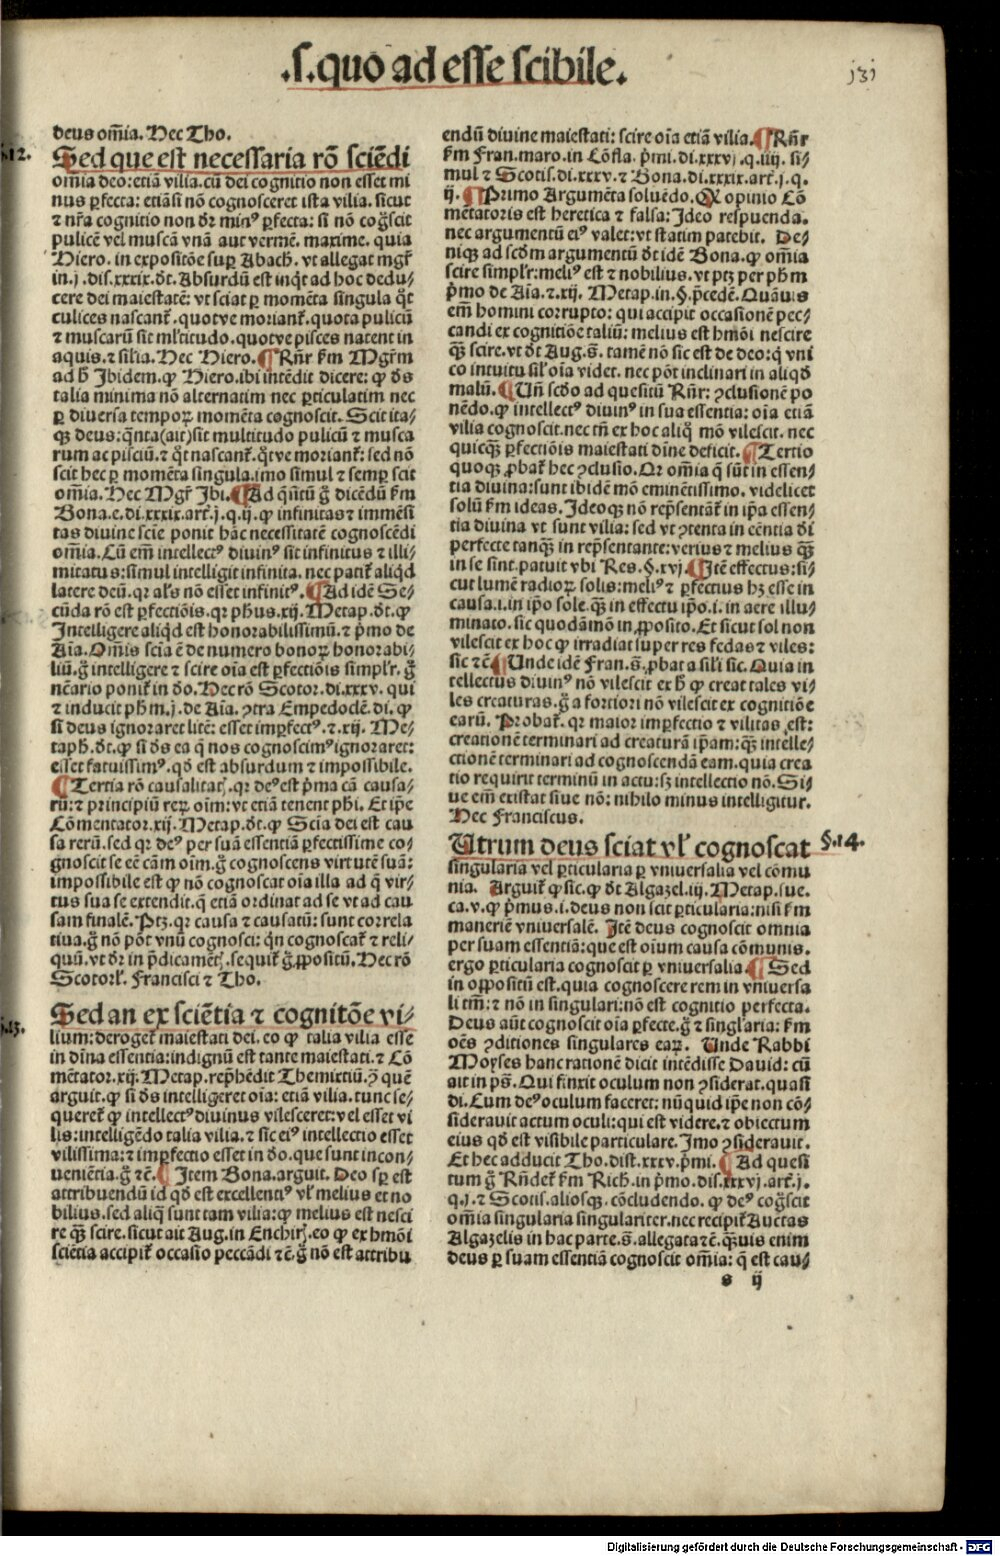 .s.quo ad esse scibile.
131
deus om̄ia. Hec Tho.
§.12.
Sed que est necessaria rō sciēdi
omīa deo: etiā vilia. cū dei cognitio non esset mi
nus ꝑfecta: etiāsi nō cognosceret ista vilia. sicut
⁊ nr̄a cognitio non dr̄ minꝰ ꝑfecta: si nō cog̃scit
pulicē vel muscā vnā aut vermē. maxime. quia
Hiero. in expositōe suꝑ Abach. vt allegat mgr̄
in.j.dis.xxxix.dt̄. Absurdū est inqt ad hoc dedu⸗
cere dei maiestatē: vt sciat ꝑ momēta singula qt̄
culices nascant̄. quotve moriant̄. quota pulicū
⁊ muscarū sit ml'titudo. quotve pisces natent in
aquis. ⁊ sil'ia. Hec Hiero. ¶ Rn̄r fm Mgr̄m
ad h̄ Ibidem. ꝙ Hiero. ibi intēdit dicere: ꝙ ds̄
talia minima nō alternatim nec ꝑticulatim nec
ꝑ diuersa tempoꝝ momēta cognoscit. Scit ita⸗
qꝫ deus: qn̄ta(ait)sit multitudo pulicū ⁊ musca
rum ac pisciū. ⁊ qt̄ nascant̄. qt̄ve moriant̄: sed nō
scit hec ꝑ momēta singula. imo simul ⁊ semꝑ scit
om̄ia. Hec Mgr̄ Ibi. ¶ Ad qn̄tū g̃ dicēdū fm
Bona.e.di.xxxix.art̄.j.q.ij. ꝙ infinitas ⁊ immēsi
tas diuine sciē ponit hāc necessitatē cognoscēdi
om̄ia. Cū em̄ intellectꝰ diuinꝰ sit infinitus ⁊ illi⸗
mitatus: simul intelligit infinita. nec patit̄ aliqd
latere deū. qꝛ al's nō esset infinitꝰ. ¶ Ad idē Se⸗
cūda rō est ꝑfectiōis. qꝛ phus.xij. Metap.dt̄. ꝙ
Intelligere aliqd est honorabilissimū. ⁊ pm̄o de
Aīa. Om̄is scīa ē de numero honoꝝ honorabi⸗
liū. g̃ intelligere ⁊ scire oīa est ꝑfectiōis simpl'r. g̃
nc̄ario ponit̄ in do. Hec rō Scotor. di.xxxv. qui
⁊ inducit phm.j.de Aīa. ↄtra Empedoclē. di. ꝙ
si deus ignoraret litē: esset imꝑfectꝰ. ⁊.xij. Me⸗
taph.dt̄. ꝙ si ds̄ ea q̄ nos cognoscimꝰ ignoraret:
esset fatuissimꝰ. qd est absurdum ⁊ impossibile.
¶ Tertia rō causalitat̄. qꝛ deꝰ est pm̄a cā causa⸗
rū: ⁊ principiū reꝝ oīm: vt etiā tenent phi. Et ip̄e
Cōmentator.xij. Metap.dt̄. ꝙ Scīa dei est cau
sa rerū. sed qꝛ deꝰ per suā essentiā ꝑfectissime co⸗
gnoscit se eē cām oīm. g̃ cognoscens virtutē suā:
impossibile est ꝙ nō cognoscat oīa illa ad q̄ vir⸗
tus sua se extendit. q̄ etiā ordinat ad se vt ad cau
sam finalē. Ptꝫ. qꝛ causa ⁊ causatū: sunt correla
tiua. g̃ nō pōt vnū cognosci: qn cognoscat̄ ⁊ reli⸗
quū. vt dr̄ in p̄dicamēt̄. sequit̄ g̃ ꝓpositū. Hec rō
Scotorl'. Francisci ⁊ Tho.
§.13.
Sed an ex sciētia ⁊ cognitōe vi⸗
lium: deroget̄ maiestati dei. eo ꝙ talia vilia esse
in dīna essentia: indignū est tante maiestati. ⁊ Cō
mētator.xij. Metap. rep̄hēdit Themistiū. ꝑ quē
arguit. ꝙ si ds̄ intelligeret oīa: etiā vilia. tunc se⸗
queret̄ ꝙ intellectꝰ diuinus vilesceret: vel esset vi
lis: intelligēdo talia vilia. ⁊ sic eiꝰ intellectio esset
vilissima: ⁊ imꝑfectio esset in do. que sunt incon⸗
ueniētia. g̃ ⁊c̄. ¶ Item Bona. arguit. Deo sꝑ est
attribuendū id qd est excellentiꝰ vl' melius et no
bilius. sed aliq̄ sunt tam vilia: ꝙ melius est nesci
re qꝫ scire. sicut ait Aug. in Enchir. eo ꝙ ex hmōi
sciētia accipit̄ occasio peccādi ⁊c̄. g̃ nō est attribu
endū diuine maiestati: scire oīa etiā vilia. ¶ Rn̄r
fm Fran. maro. in Cōfla. pm̄i. di.xxxvj.q.iiij. si⸗
mul ⁊ Scotis. di.xxxv. ⁊ Bona. di.xxxix.art̄.j.q.
ij. ¶ Primo Argumēta soluēdo. Qꝛ opinio Cō
mētatoris est heretica ⁊ falsa: Ideo respuenda.
nec argumentū eiꝰ valet: vt statim patebit. De⸗
niqꝫ ad scd̄m argumentū dt̄ idē Bona. ꝙ om̄ia
scire simpl'r: meliꝰ est ⁊ nobilius. vt ptꝫ per phm
pm̄o de Aīa. ⁊.xij. Metap. in.§. p̄cedē. Quāuis
em̄ homini corrupto: qui accipit occasionē pec⸗
candi ex cognitiōe taliū: melius est hmōi nescire
qꝫ scire. vt dt̄ Aug. s. tamē nō sic est de deo: q̄ vni
co intuitu sil' oīa videt. nec pōt inclinari in aliqd
malū. ¶ Vn̄ scdo ad quesitū Rn̄r: ↄclusionē po
nēdo. ꝙ intellectꝰ diuinꝰ in sua essentia: oīa etiā
vilia cognoscit. nec tn̄ ex hoc aliq̄ mō vilescit. nec
quicqꝫ ꝑfectiōis maiestati diē deficit. ¶ Tertio
quoqꝫ ꝓbat̄ hec ↄclusio. Qꝛ om̄ia q̄ sūt in essen⸗
tia diuina: sunt ibidē mō eminētissimo. videlicet
solū fm ideas. Ideoqꝫ nō rep̄sentāt̄ in ip̄a essen⸗
tia diuina vt sunt vilia: sed vt ↄtenta in eēntia di
perfecte tanqꝫ in rep̄sentante: verius ⁊ melius qꝫ
in se sint. patuit vbi Res.§.xvj. ¶ Itē effectus: si⸗
cut lumē radioꝝ solis: meliꝰ ⁊ ꝑfectius hꝫ esse in
causa.i.in ip̄o sole. qꝫ in effectu ip̄o.i.in aere illu⸗
minato. sic quodāmō in ꝓposito. Et sicut sol non
vilescit ex hoc ꝙ irradiat super res fedas ⁊ viles:
sic ⁊c̄. ¶ Unde idē Fran. s. ꝓbat a sil'i sic. Quia in
tellectus diuinꝰ nō vilescit ex h̄ ꝙ creat tales vi⸗
les creaturas. g̃ a fortiori nō vilescit ex cognitiōe
earū. Probat̄. qꝛ maior imꝑfectio ⁊ vilitas est:
creationē terminari ad creaturā ip̄am: qꝫ intelle⸗
ctionē terminari ad cognoscendā eam. quia crea
tio requirit terminū in actu: sꝫ intellectio nō. Si⸗
ue em̄ existat siue nō: nihilo minus intelligitur.
Hec Franciscus.
§.14.
Utrum deus sciat vl' cognoscat
singularia vel ꝑticularia ꝑ vniuersalia vel cōmu
nia. Arguit̄ ꝙ sic. ꝙ dt̄ Algazel.iij. Metap. sue.
ca.v. ꝙ pm̄us.i.deus non scit ꝑticularia: nisi fm
maneriē vniuersalē. Itē deus cognoscit omnia
per suam essentiā: que est oīum causa cōmunis.
ergo ꝑticularia cognoscit ꝑ vniuersalia. ¶ Sed
in oppositū est. quia cognoscere rem in vniuersa
li tm̄: ⁊ nō in singulari: nō est cognitio perfecta.
Deus aūt cognoscit oīa ꝑfecte. g̃ ⁊ singl'aria: fm
oēs ↄditiones singulares eaꝝ. Unde Rabbi
Moyses hanc rationē dicit intēdisse Dauid: cū
ait in ps̄. Qui finxit oculum non ↄsiderat. quasi
di. Cum deꝰ oculum faceret: nūquid ip̄e non cō⸗
siderauit actum oculi: qui est videre. ⁊ obiectum
eius qd est visibile particulare. Imo ↄsiderauit.
Et hec adducit Tho. dist.xxxv.pm̄i. ¶ Ad quesi
tum g̃ Rn̄det̄ fm Rich. in pm̄o. dis.xxxvj.art̄.j.
q.j. ⁊ Scotis. aliosqꝫ. cōcludendo. ꝙ deꝰ cog̃scit
om̄ia singularia singulariter. nec recipit̄ Auctas
Algazelis in hac parte. s. allegata ⁊c̄. qꝫuis enim
deus ꝑ suam essentiā cognoscit om̄ia: q̄ est cau⸗
s ij
Digitalisierung gefördert durch die Deutsche Forschungsgemeinschaft - DFG